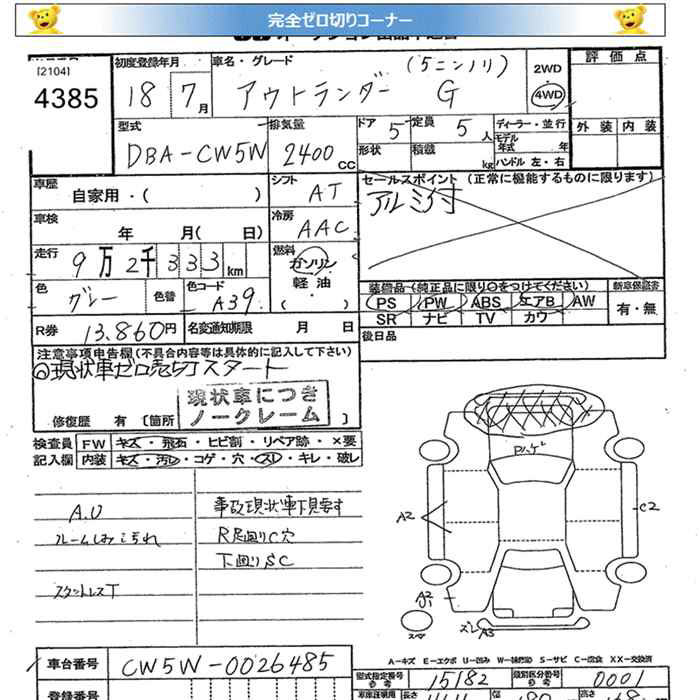 完全ゼロ切りコーナー
[2104]
4385
初度登録年月
18 7月
車名・グレード
(5ニンノリ)
アウトランダー G
2WD
4WD
評価点
外装 内装
型式
DBA-CW5W
排気量
2400 CC
ドア 5
定員 5人
形状
積載 kg
ディーラー・並行
モデル年式 年
ハンドル 左・右
車歴
自家用・( )
シフト
AT
セールスポイント (正常に機能するものに限ります)
アルミ付
車検
年 月( 日)
冷房
AAC
走行
9万2千333km
燃料
ガソリン
軽油
( )
色
グレー
色替
色コード
A39
装備品 (純正品に限り○をつけてください)
PS PW ABS エアB AW
SR ナビ TV カワ
新車保証書
有・無
R券 13,860円
名変通知期限 月 日
後日品
注意事項申告欄(不具合内容等は具体的に記入して下さい)
◎現状車ゼロ売切スタート
現状車につき
ノークレーム
修復歴 有 [箇所 ]
検査員 FW キズ・飛石・ヒビ割・リペア跡・×要
記入欄 内装 キズ・汚レ・コゲ・穴・スレ・キレ・破レ
A.U
ルームしみこられ
スタットレスT
事故現状車下見要す
R足回りC穴
下回りSC
Pハゲ
A2
C2
A2
スレ A3
A-キズ E-エクボ U-凹み W-補修跡 S-サビ C-腐食 XX-交換済
車台番号 CW5W-0026485
型式指定番号 15182
類別区分番号 0001
登録番号